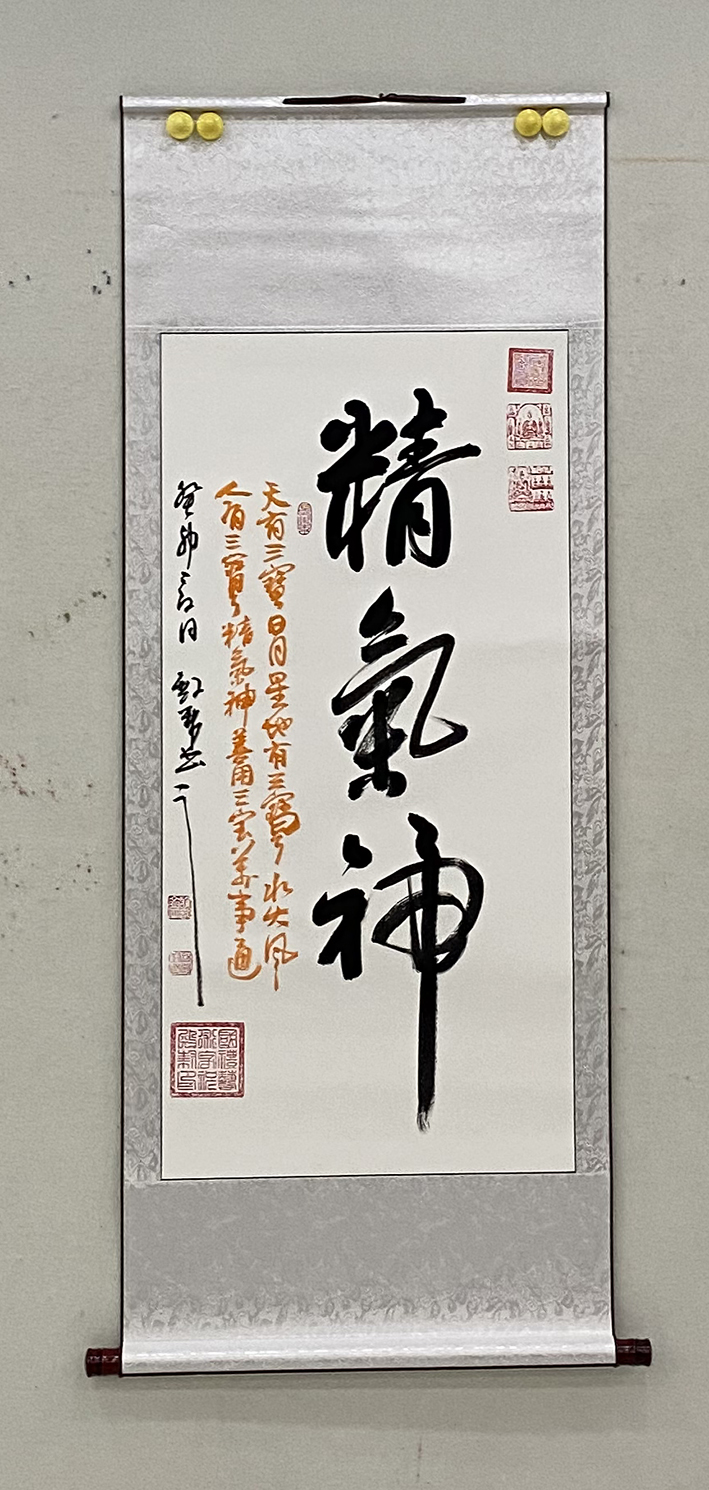 精氣神
天有三寶日月星地有三寶水火風
人有三寶精氣神善用三宝萬事通
癸卯